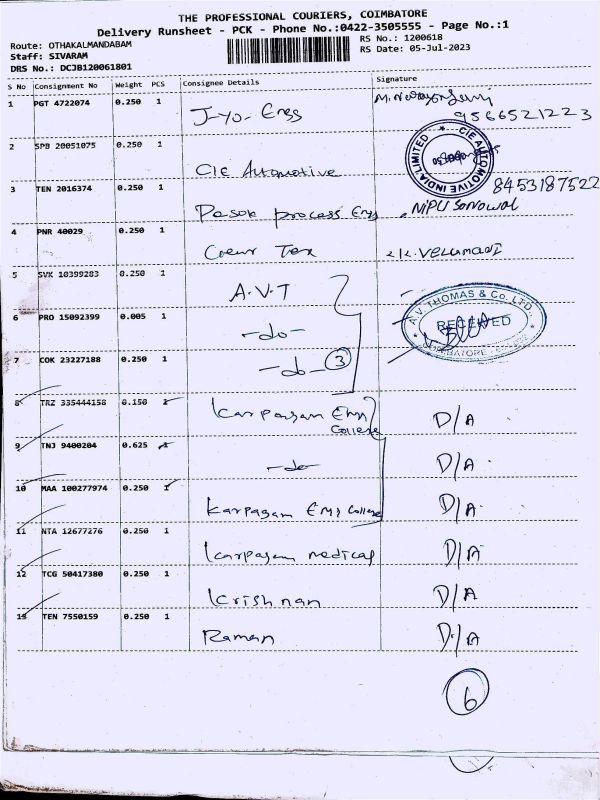 THE PROFESSIONAL COURIERS, COIMBATORE
Delivery Runsheet - PCK - Phone No.:0422-3505555 - Page No.:1
Route: OTHAKALMANDABAM
RS No.: 1200618
Staff: SIVARAM
RS Date: 05-Jul-2023
DRS No.: DCJB120061801
S No Consignment No Weight PCS Consignee Details Signature
1 PGT 4722074 0.250 1 J-yo- Engg
9566521223
2 SPB 20051075 0.250 1 CIE Automotive
CIE AUTOMOTIVE INDIA LIMITED
3 TEN 2016374 0.250 1 process Engg Nipu Sonowal
8453187522
4 PNR 40029 0.250 1 Tex K. VELUMANI
5 SVK 10399283 0.250 1 A.V.T
6 PRO 15092399 0.005 1 -do-
A.V. THOMAS & Co. LTD.,
RECEIVED
COIMBATORE
7 COK 23227188 0.250 1 -do- 3
8 TRZ 335444158 0.150 1 Karpagam Engg College D/A
9 TNJ 9400204 0.625 1 -do- D/A
10 MAA 100277974 0.250 1 Karpagam Engg College D/A
11 NTA 12677276 0.250 1 Karpagam medical D/A
12 TCG 50417380 0.250 1 Krishnan D/A
13 TEN 7550159 0.250 1 Raman D/A
6